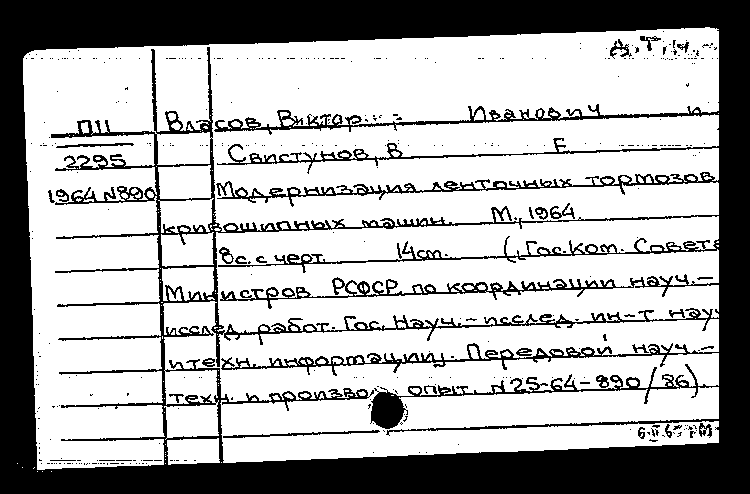 А.Т.Н.
П11 Власов, Виктор Иванович и
2295 Свистунов, В Е
1964 N890 Модернизация ленточных тормозов
кривошипных машин. М., 1964.
8с. с черт. 14см. (Гос. Ком. Совета
Министров РСФСР по координации науч.-
исслед. работ. Гос. Науч.-исслед. ин-т науч
и техн. информации. Передовой науч.-
техн. и произво опыт. N 25-64-890/86).